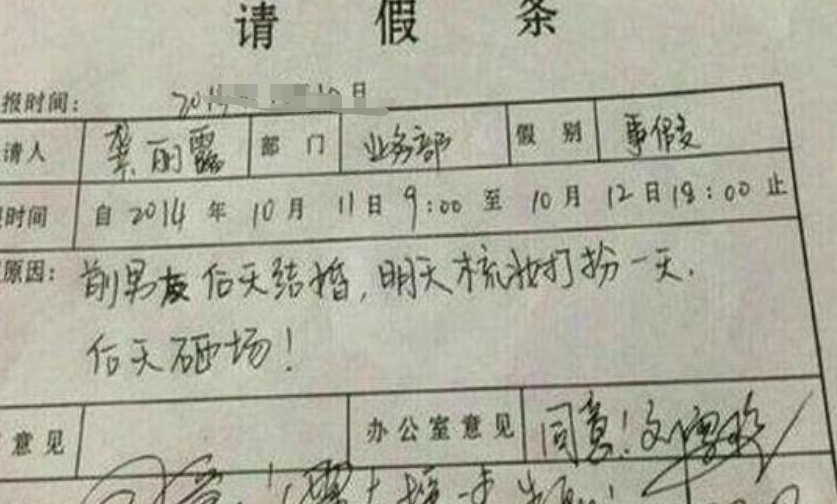 请假条
报时间: 日
请人 龚丽露 部门 业务部 假别 事假
时间 自2014年10月11日9:00至10月12日18:00止
原因: 前男友后天结婚,明天梳妆打扮一天.
后天砸场!
意见 办公室意见 同意!